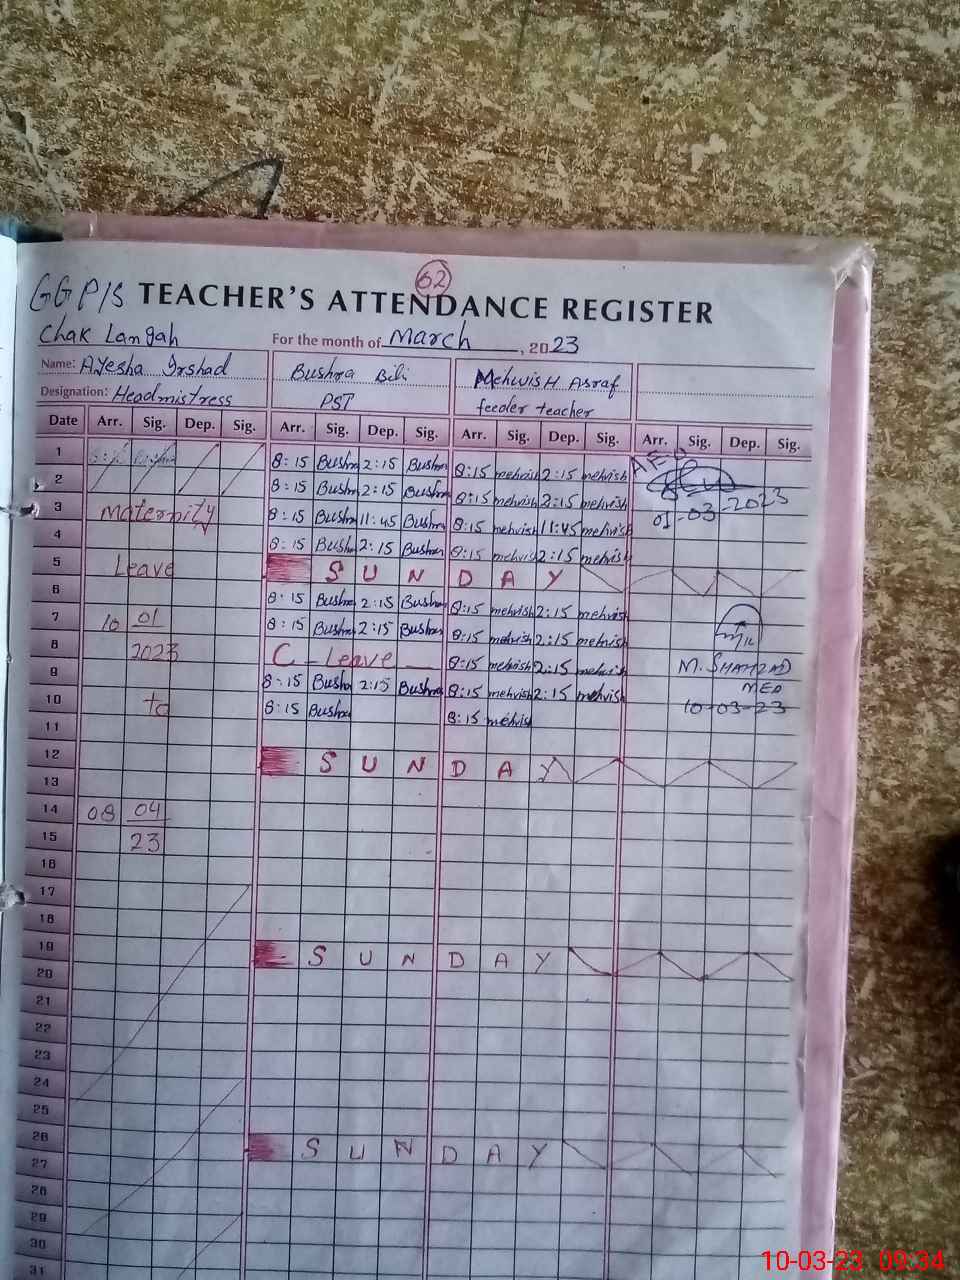 62
GGP/S TEACHER'S ATTENDANCE REGISTER
Chak Langah For the month of March, 2023
Name: Ayesha Irshad Bushra Bibi Mehwish Asraf
Designation: Headmistress PST feeder teacher
Date Arr. Sig. Dep. Sig. Arr. Sig. Dep. Sig. Arr. Sig. Dep. Sig. Arr. Sig. Dep. Sig.
1 8:15 Bushra 2:15 Bushra 8:15 mehvish 2:15 mehvish AEO
2 8:15 Bushra 2:15 Bushra 8:15 mehvish 2:15 mehvish 01-03-2023
3 Maternity 8:15 Bushra 11:45 Bushra 8:15 mehvish 11:45 mehvish
4 8:15 Bushra 2:15 Bushra 8:15 mehvish 2:15 mehvish
5 Leave SUNDAY
6 8:15 Bushra 2:15 Bushra 8:15 mehvish 2:15 mehvish
7 10 01 8:15 Bushra 2:15 Bushra 8:15 mehvish 2:15 mehvish
8 2023 C-Leave 8:15 mehvish 2:15 mehvish M. SHAHZAD
9 8:15 Bushra 2:15 Bushra 8:15 mehvish 2:15 mehvish MEA
10 to 8:15 Bushra 8:15 mehvis 10-03-23
11
12 SUNDAY
13
14 08 04
15 23
16
17
18
19 SUNDAY
20
21
22
23
24
25
26 SUNDAY
27
28
29
30
31
10-03-23 09:34